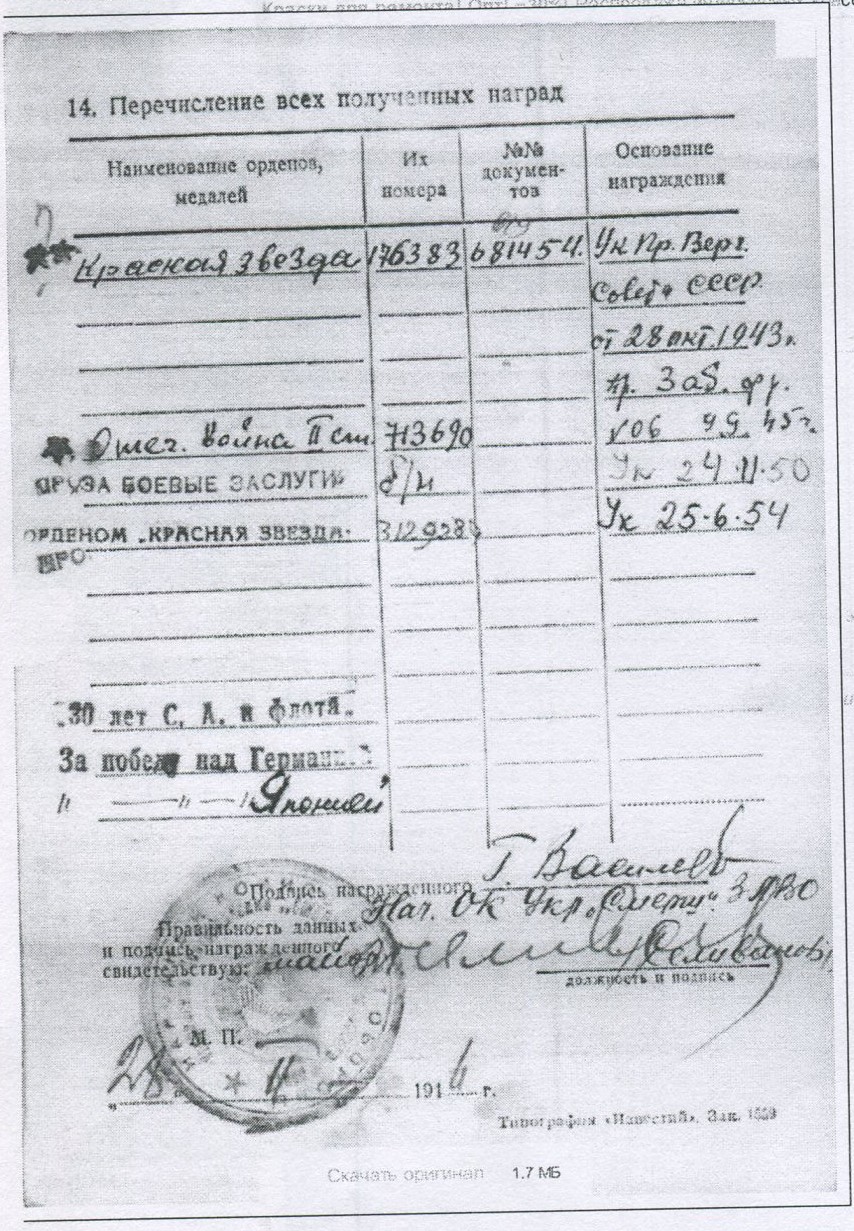 14. Перечисление всех полученных наград
Наименование орденов, медалей
Их номера
№№ документов
Основание награждения
Красная звезда 176383 681454. Ук Пр. Верх.
Совета СССР
от 28 окт. 1943 г.
пр. Заб. фр.
Отеч. война II ст. 713690 №06 9.9.45 г.
ЗА БОЕВЫЕ ЗАСЛУГИ б/н Ук 24.11.50
ОРДЕНОМ „КРАСНАЯ ЗВЕЗДА" Ук 25.6.54
30 лет С. А. и флота.
За победу над Германией
" — " — " Японией
Подпись награжденного Г. Васильев
Нач. ОК Укр. „Смерш" ЗабВО
Правильность данных
и подпись награжденного
свидетельствую: майор Селиванов
должность и подпись
М. П.
„28" 4 1946 г.
Типография «Известий», Зак. 1559
Скачать оригинал 1.7 МБ